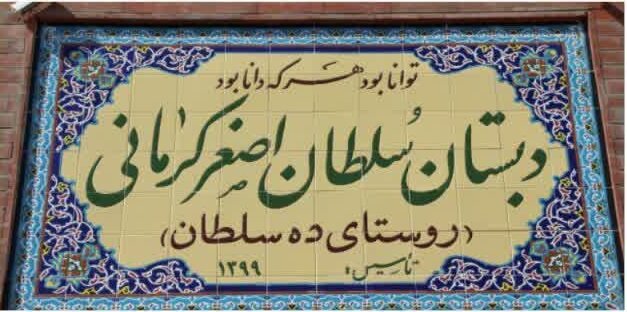 توانا بود هر که دانا بود
دبستان سُلطان اصغر کرمانی
(روستای ده سلطان)
تأسیس: ۱۳۹۹